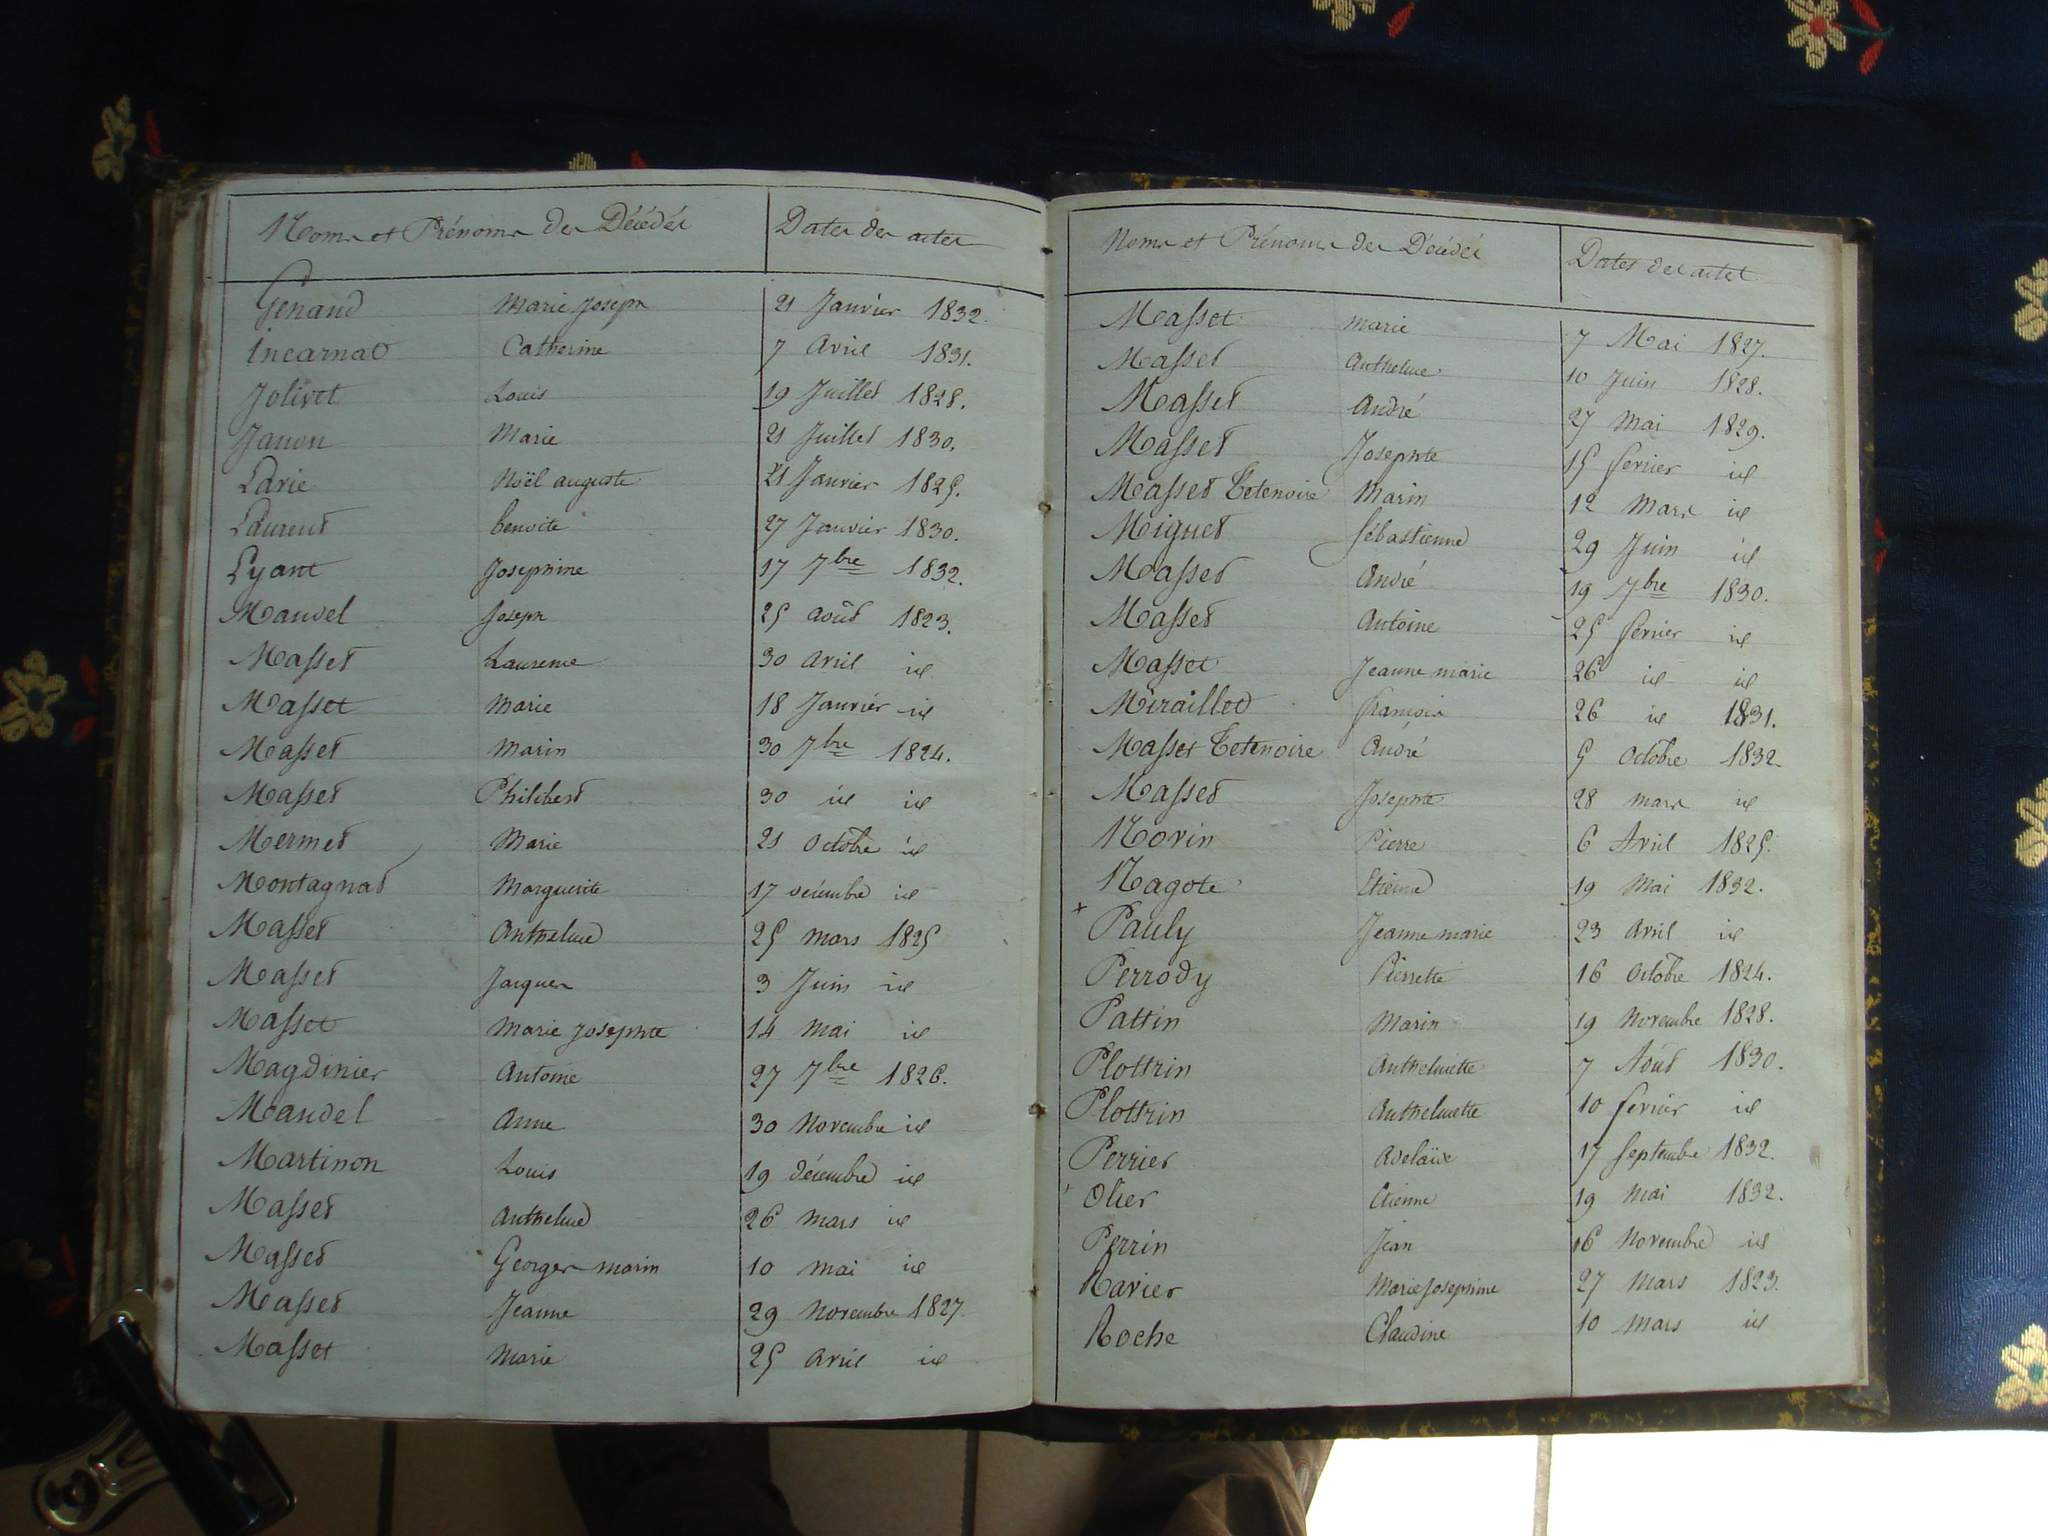 Noms et Prénoms des Décédés Dates des actes
Genand Marie Joseph 21 Janvier 1832.
Incarnat Catherine 7 Avril 1831.
Jolivet Louis 19 Juillet 1828.
Janon Marie 21 Juillet 1830.
Larie Noël auguste 21 Janvier 1825.
Laurent benoite 27 Janvier 1830.
Lyant Josephine 17 7bre 1832.
Mandel Joseph 25 août 1823.
Masset Laurence 30 avril id
Masset Marie 18 Janvier id
Masset Marin 30 7bre 1824.
Masset Philibert 30 id id
Mermet Marie 21 Octobre id
Montagnat Marguerite 17 décembre id
Masset Anthelme 25 mars 1825
Masset Jacques 3 Juin id
Masset Marie Josephte 14 Mai id
Magdinier Antoine 27 7bre 1826.
Mandel Anne 30 Novembre id
Martinon Louis 19 décembre id
Masset Anthelme 26 Mars id
Masset Georges marin 10 mai id
Masset Jeanne 29 Novembre 1827
Masset Marie 25 avril id
Noms et Prénoms des Décédés Dates des actes
Masset marie 7 Mai 1827.
Masset Anthelme 10 Juin 1828.
Masset André 27 Mai 1829.
Masset Josephte 15 fevrier id
Masset Tetenoire Marin 12 Mars id
Miguet Sébastienne 29 Juin id
Masset André 19 7bre 1830.
Masset Antoine 25 fevrier id
Masset Jeanne marie 26 id id
Miraillet francois 26 id 1831.
Masset Tetenoire André 5 Octobre 1832
Masset Josephte 28 mars id
Norin Pierre 6 Avril 1825.
Nagote Etienne 19 Mai 1832.
x Pauly Jeanne marie 23 Avril id
Perrody Pierrette 16 Octobre 1824.
Pattin Marin 19 Novembre 1828.
Plottrin Anthelmette 7 Août 1830.
Plottrin Anthelmette 10 fevrier id
Perrier Adelaïde 17 Septembre 1832.
Olier Etienne 19 Mai 1832.
Perrin Jean 16 Novembre id
Ravier Marie Josephine 27 Mars 1823.
Roche Claudine 10 Mars id